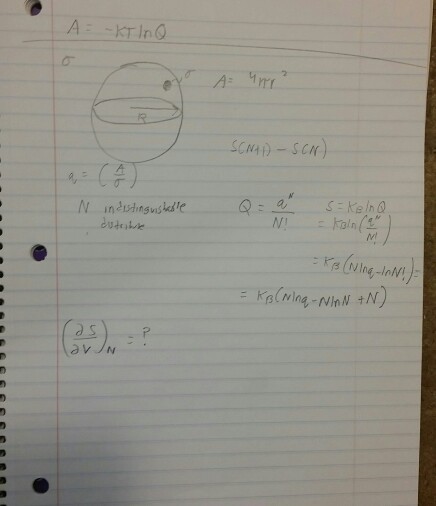 A = -KT ln Q
σ
σ
A = 4πr²
R
S(N+1) - S(N)
q = (A/σ)
N indistinguistable
distribse
Q = q^N/N!
S = K_B ln Q
= K_B ln(q^N/N!)
= K_B (N ln q - ln N!) =
= K_B (N ln q - N ln N + N)
(∂S/∂V)_N = ?